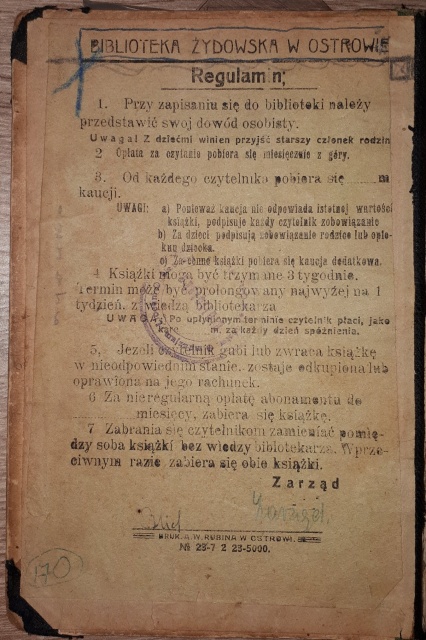 BIBLIOTEKA ŻYDOWSKA W OSTROWIE
Regulamin;
1. Przy zapisaniu się do biblioteki należy
przedstawić swoj dowód osobisty.
Uwaga! Z dziećmi winien przyjść starszy członek rodzin
2 Opłata za czytanie pobiera się miesięcznie z góry.
3. Od każdego czytelnika pobiera się
kaucji.
UWAGI: a) Ponieważ kaucja nie odpowiada istotnej wartości
książki, podpisuje każdy czytelnik zobowiązanie
b) Za dzieci podpisują zobowiązanie rodzice lub opie-
kun dziecka.
c) Za cenne książki pobiera się kaucja dodatkowa.
4 Książki mogą być trzymane 3 tygodnie.
Termin może być prolongowany najwyżej na 1
tydzień, z wiedzą bibliotekarza
UWAGA: Po upłynionym terminie czytelnik płaci, jako
karę m. za każdy dzień spóźnienia.
5, Jeżeli czytelnik gubi lub zwraca książkę
w nieodpowiednim stanie, zostaje odkupiona lub
oprawiona na jego rachunek.
6 Za nieregularną opłatę abonamentu do
miesięcy, zabiera się książkę.
7 Zabrania się czytelnikom zamieniać pomię-
dzy sobą książki bez wiedzy bibliotekarza. W prze-
ciwnym razie zabiera się obie książki.
Zarząd
DRUK. A. W. RUBINA W OSTROWI.
№ 23-7 2 23-5000.
170